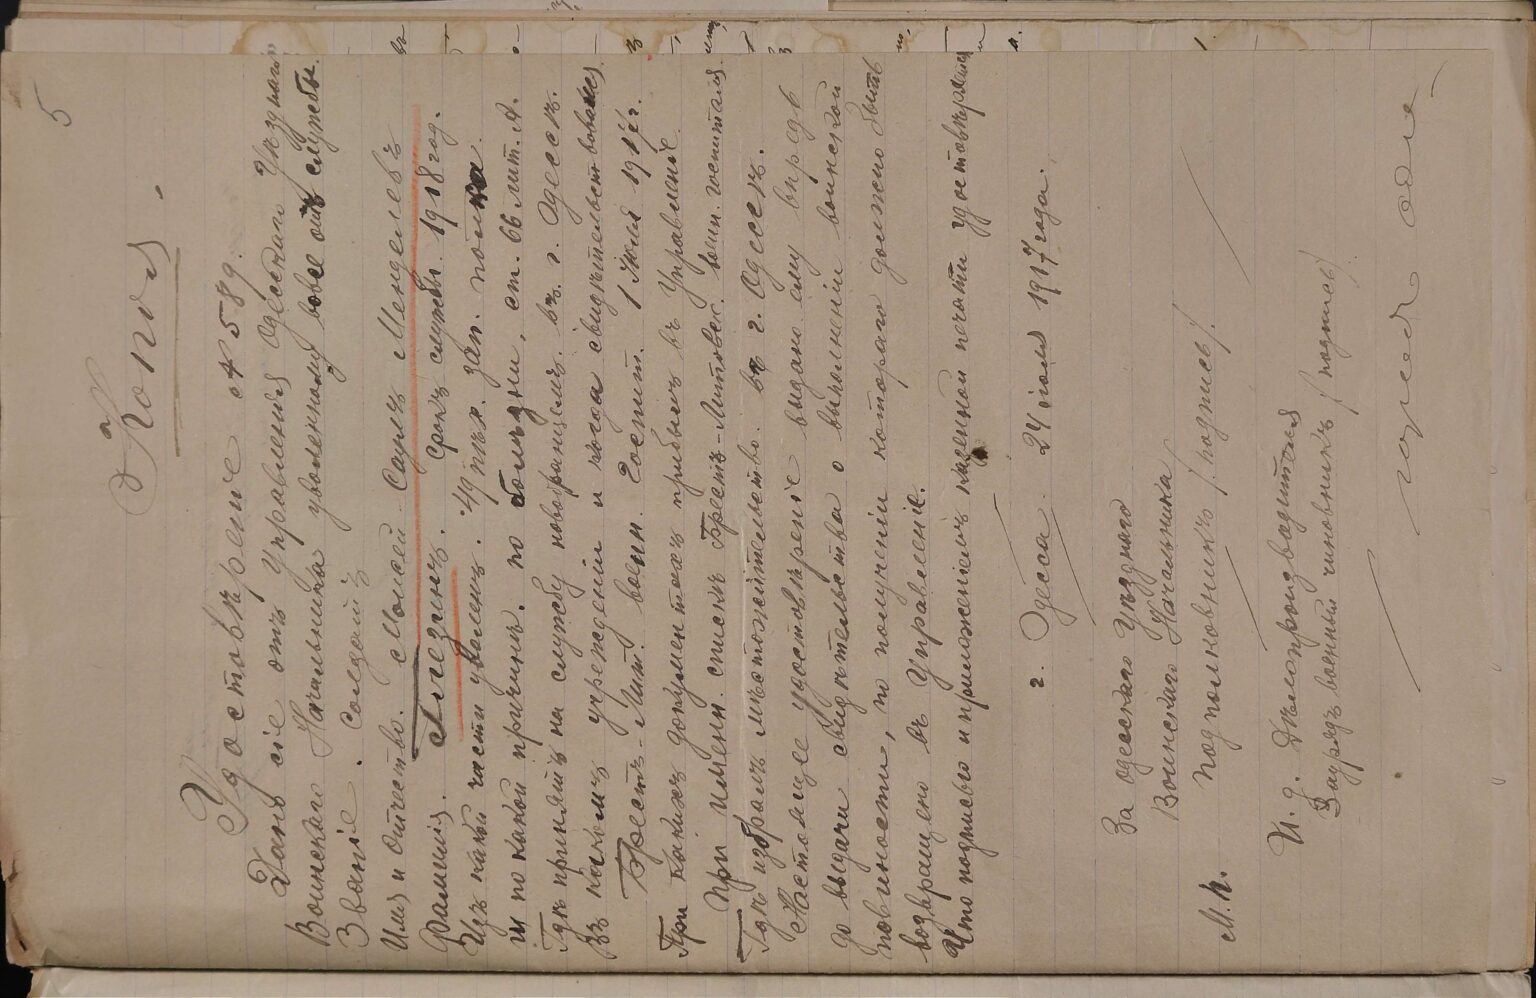 5
Копія.
Удостовѣреніе № 589.
Дано сіе отъ Управленія Одесскаго Уѣзднаго
Воинскаго Начальника уволенному вовсе отъ службы.
Званіе. Солдатъ
Имя и Отчество. Моисей-Саулъ Менделевъ
Фамилія. срокъ службы. 1918 год.
Изъ какой части уволенъ. 49 пѣх. зап. полка.
и по какой причинѣ. по болѣзни, ст. 66 лит. А.
Гдѣ принятъ на службу новобранцемъ. въ г. Одессѣ.
Въ какомъ учрежденіи и когда свидѣтельствовался
Брестъ-Лит. воен. Госпит. 1 Іюля 1917 г.
При какихъ документахъ прибылъ въ Управленіе
При Именн. спискѣ Брестъ-Литовск. воен. госпиталя
Гдѣ избралъ мѣстожительство. въ г. Одессѣ.
Настоящее удостовѣреніе выдано ему впредь
до выдачи свидѣтельства о выполненіи воинской
повинности, по полученіи котораго должно быть
возвращено въ Управленіе.
Что подписью и приложеніемъ казенной печати удостовѣряется
г. Одесса. 24 іюля 1917 года.
За Одесскаго Уѣзднаго
Воинскаго Начальника
Подполковникъ /подпись/.
М. п.
И. д. Дѣлопроизводителя
Заурядъ военный чиновникъ /подпись/